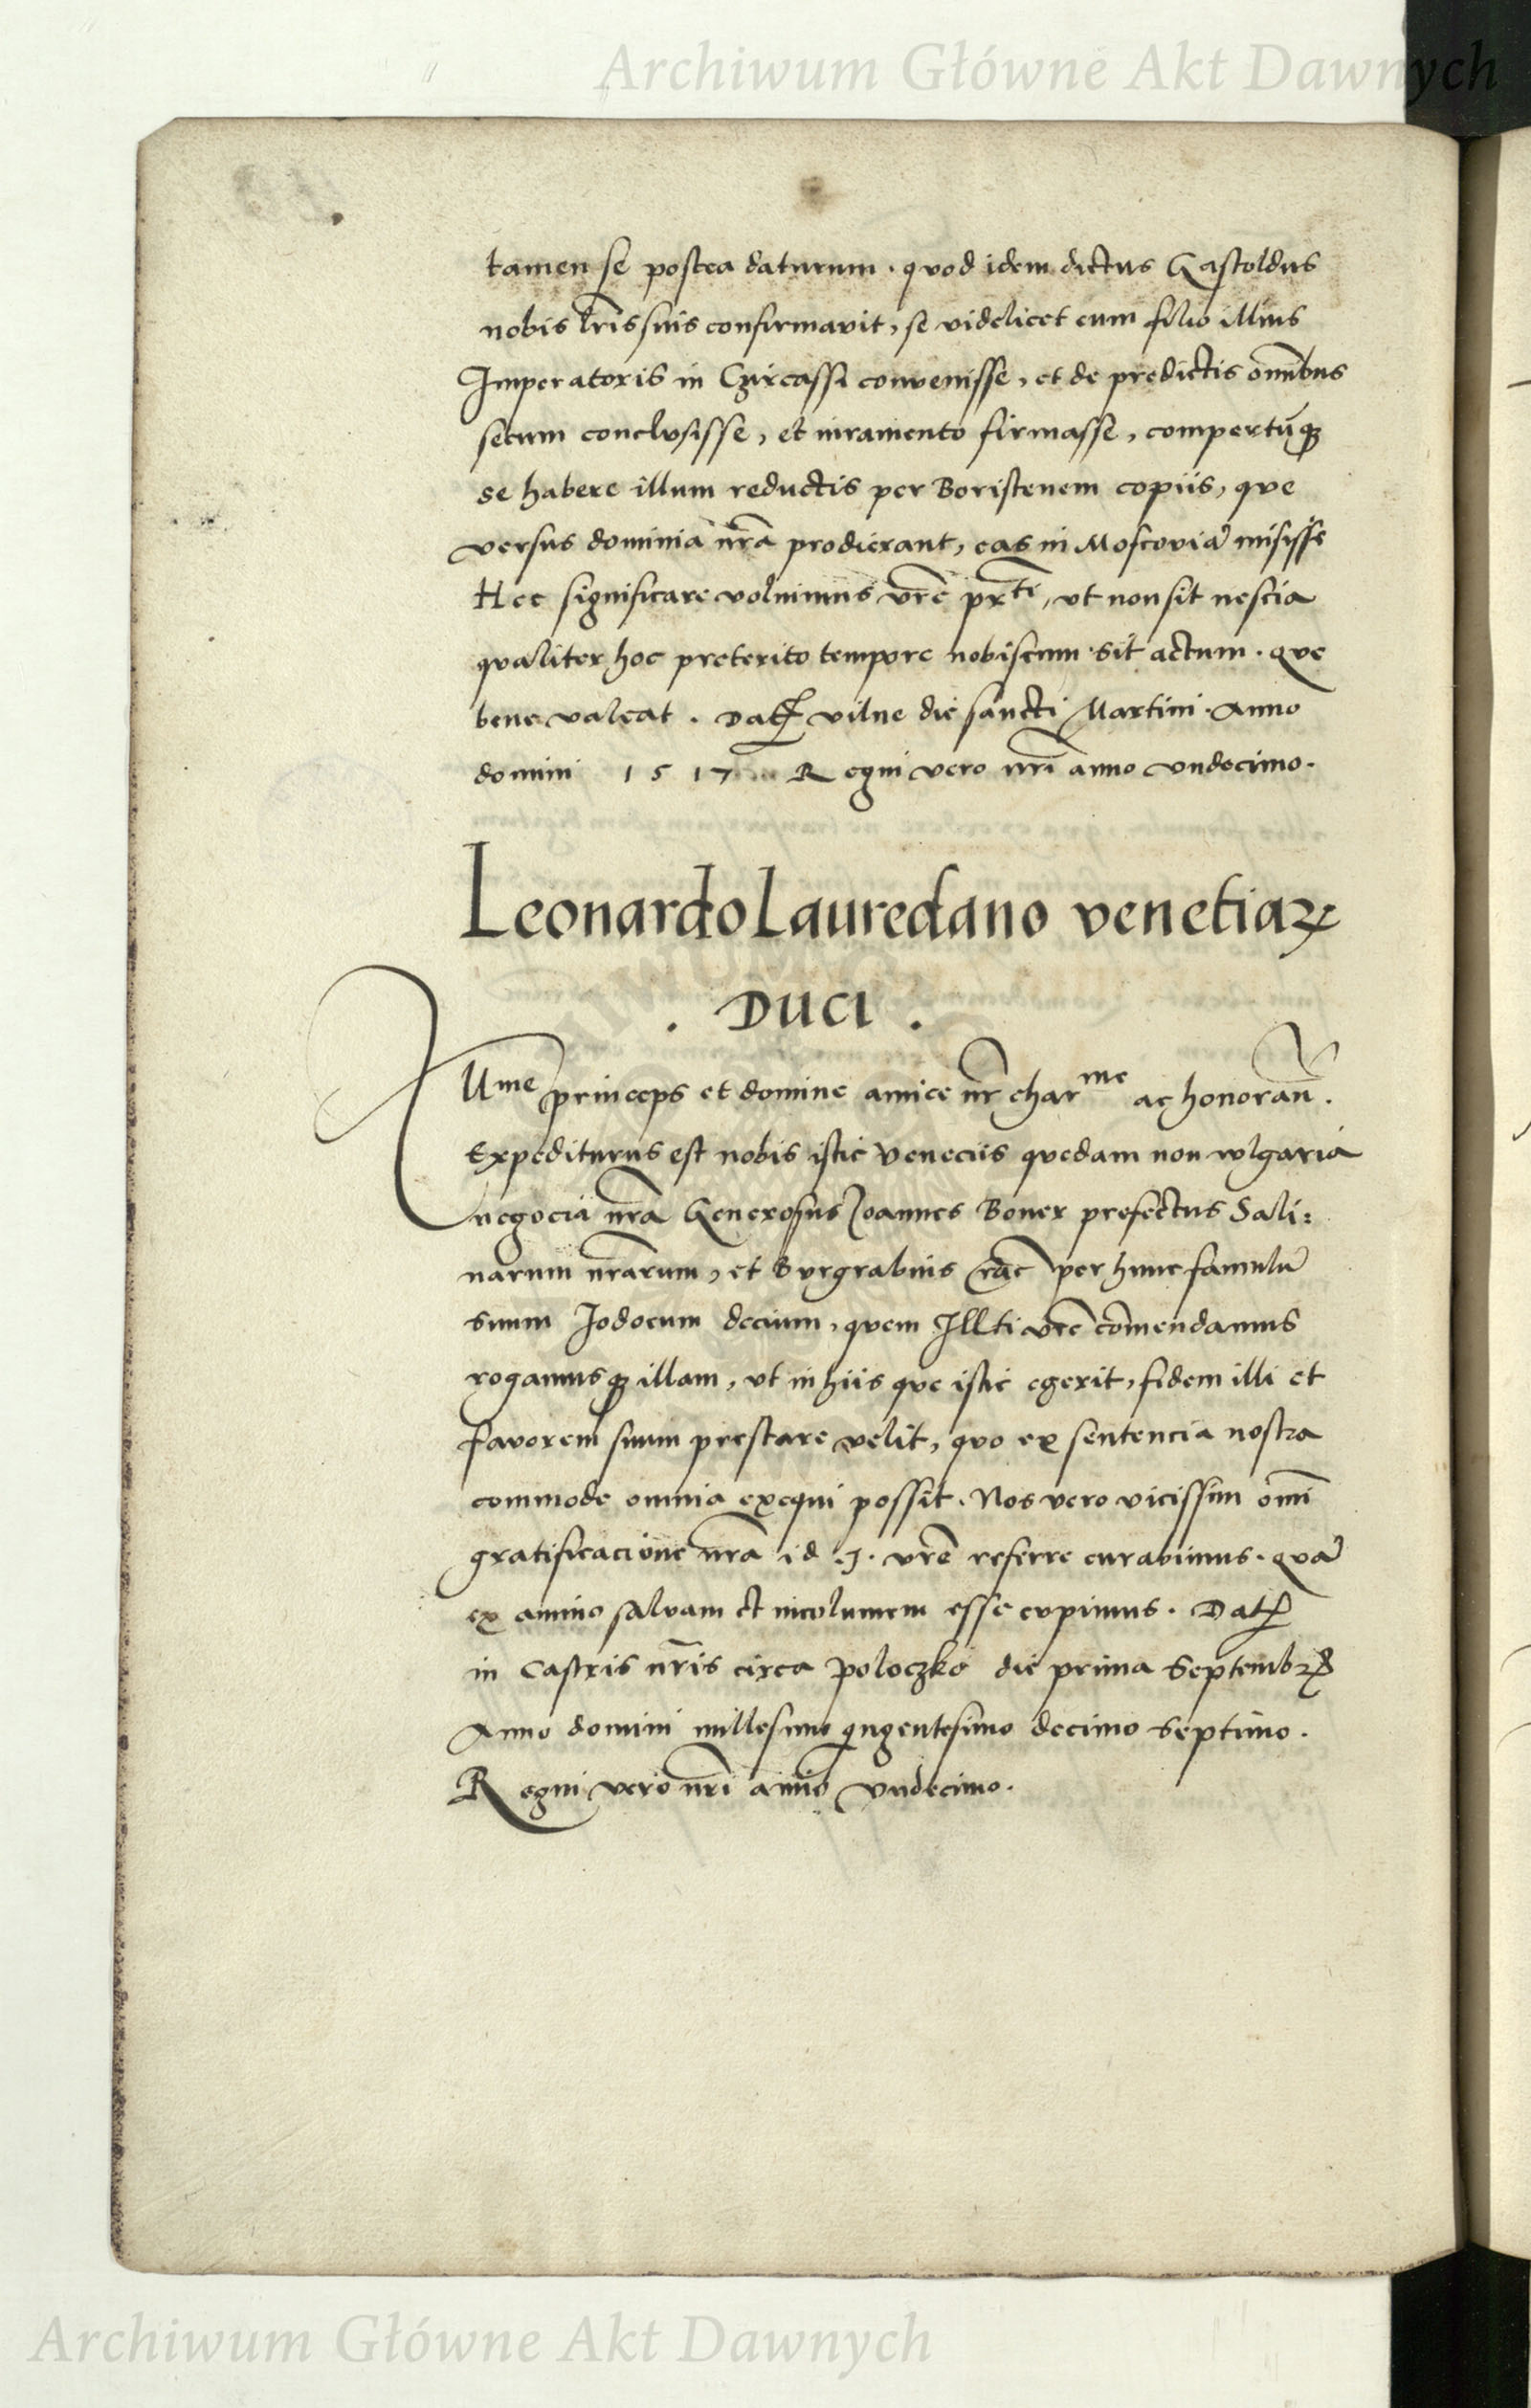 Archiwum Główne Akt Dawnych
tamen se postea daturum. quod idem dictus Gastoldus
nobis lr̃is suis confirmavit, se videlicet cum filio illius
Imperatoris in Czircassi convenisse, et de predictis om̃ibus
secum conclusisse, et iuramento firmasse, compertũqꝫ
se habere illum reductis per Boristenem copiis, que
versus dominia nr̃a prodierant, eas in Moscoviã misisse
Hec significare voluimus vr̃e pr̃ti, ut non sit nescia
qualiter hoc preterito tempore nobiscum sit actum. que
bene valeat. Datꝭ vilne die sancti Martini. Anno
domini 1517 Regni vero nr̃i anno undecimo.
Leonardo Lauredano venetiaꝝ
. DUCI .
Illme princeps et domine amice nr̃ charme ac honorañ.
Expediturus est nobis istic Veneciis quedam non vulgaria
negocia nr̃a Generosus Joannes Boner prefectus Sali:
narum nr̃arum, et Burgrabius rãc per hunc famulũ
suum Jodocum decium, quem Illti vr̃e com̃endamus
rogamusqꝫ illam, ut in hiis que istic egerit, fidem illi et
favorem suum prestare velit, quo ex sentencia nostra
commode omnia exequi possit. Nos vero vicissim om̃i
gratificacione nr̃a id .J. vr̃e referre curabimus. quã
ex animo salvam et incolumem esse cupimus. Datꝭ
in Castris nr̃is circa Poloczko die prima Septembrꝭ
Anno domini millesimo qingentesimo decimo septimo.
Regni vero nr̃i anno undecimo.
Archiwum Główne Akt Dawnych